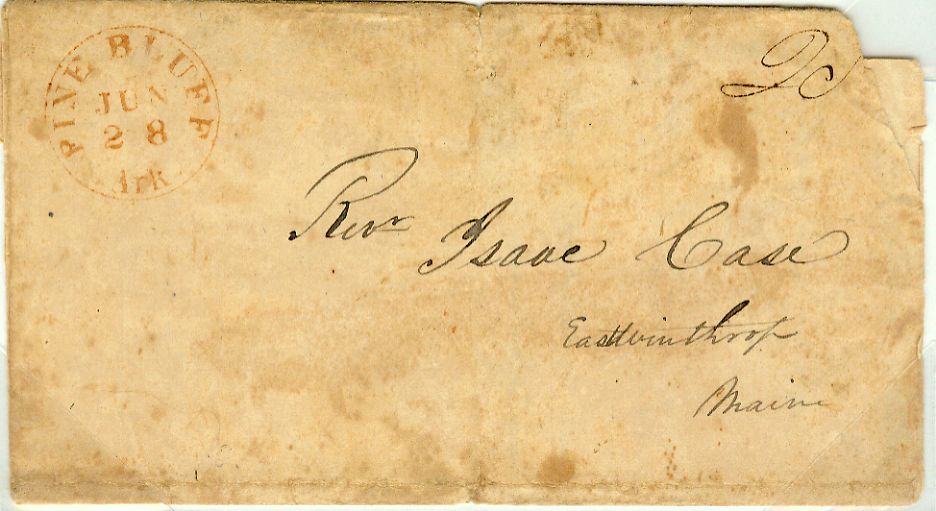 PINE BLUFF
JUN
28
Ark
Revr Isaac Case
Eastwinthrop
Maine